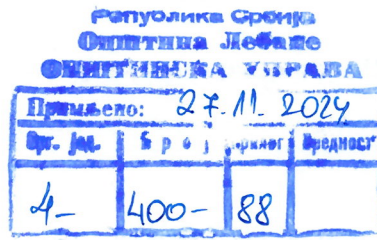 Република Србија
Општина Лебане
ОПШТИНСКА УПРАВА
Примљено: 27.11.2024
Орг. јед. Број Прилог Вредност
4- 400- 88